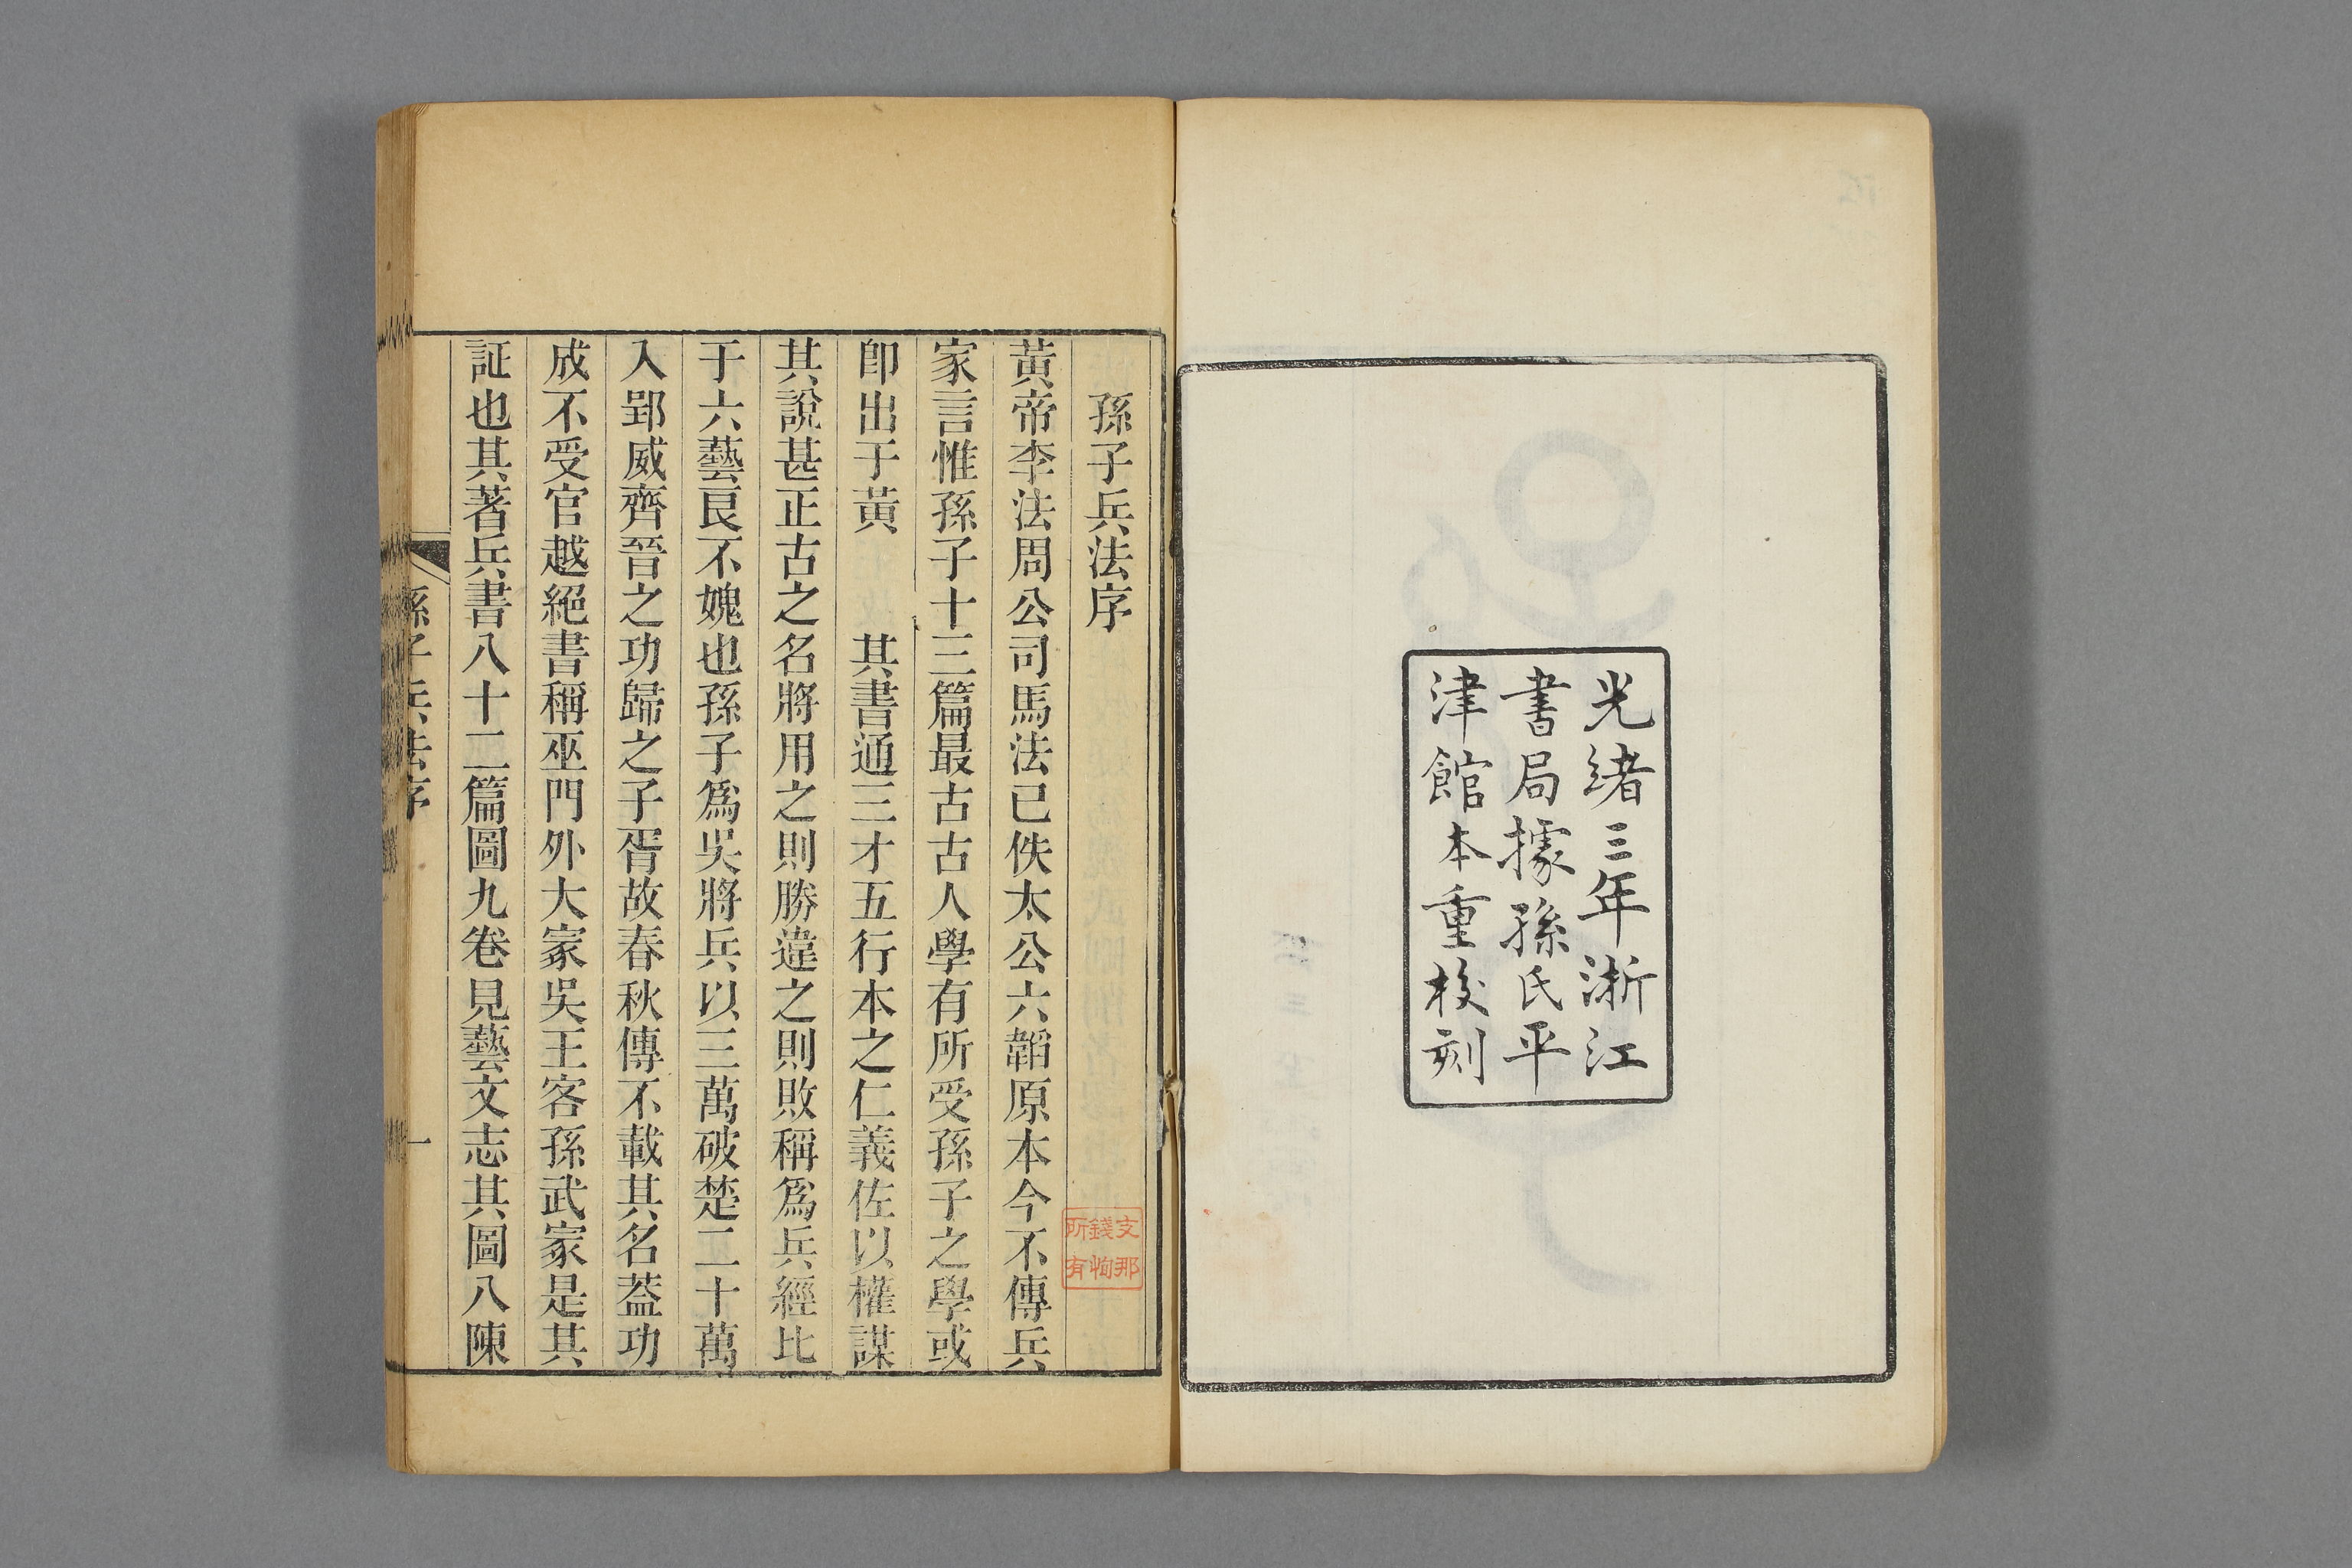 光緒三年浙江
書局據孫氏平
津館本重校刻
孫子兵法序
黃帝李法周公司馬法已佚太公六韜原本今不傳兵
家言惟孫子十三篇最古古人學有所受孫子之學或
卽出于黃 其書通三才五行本之仁義佐以權謀
其說甚正古之名將用之則勝違之則敗稱爲兵經比
于六藝良不媿也孫子爲吳將兵以三萬破楚二十萬
入郢威齊晉之功歸之子胥故春秋傳不載其名葢功
成不受官越絕書稱巫門外大冢吳王客孫武冢是其
証也其著兵書八十二篇圖九卷見藝文志其圖八陳
孫子兵法序
一
支那
錢恂
所有